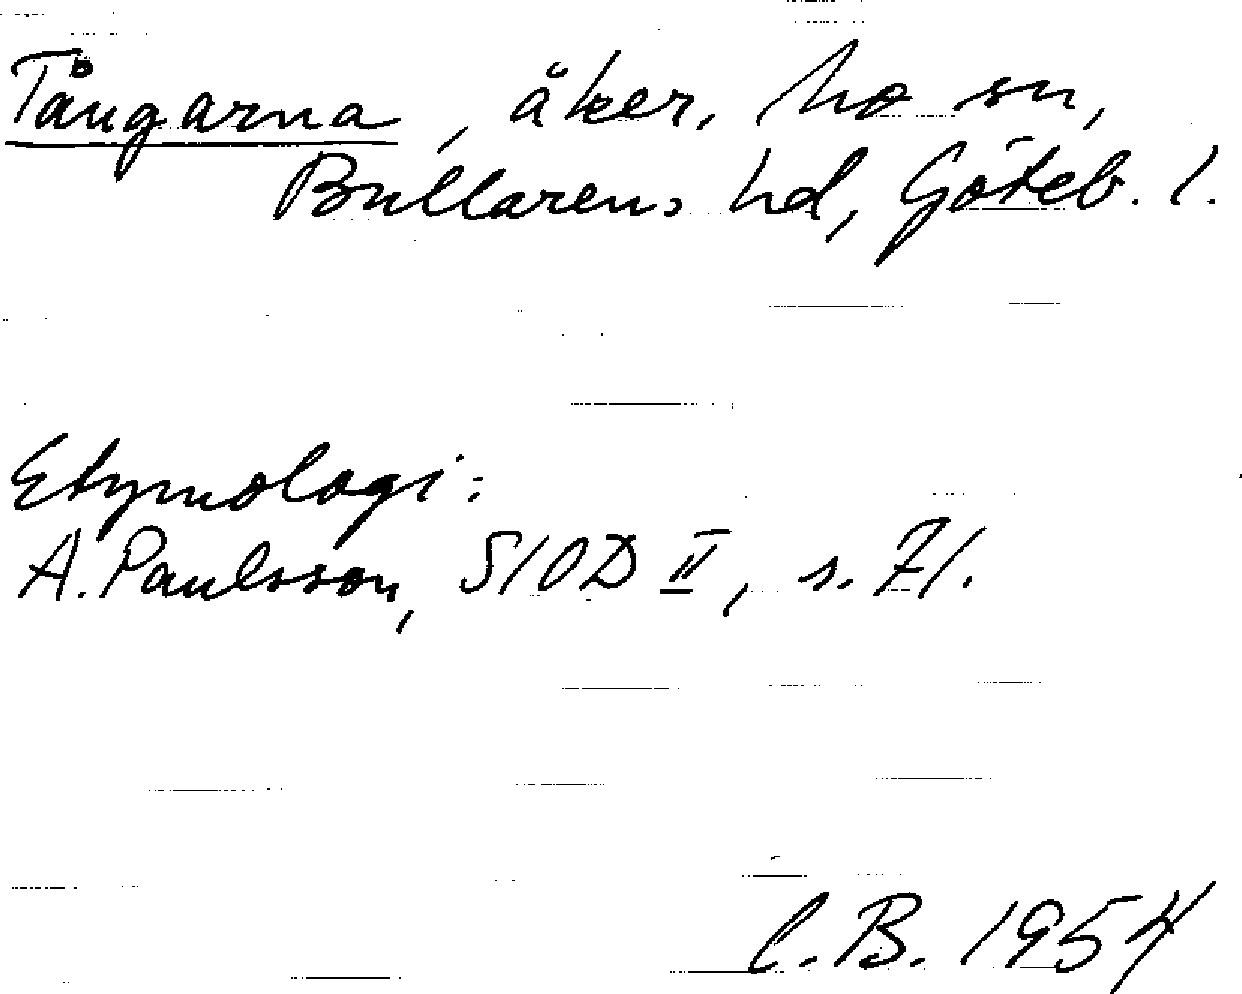 Tångarna, åker, Mo sn,
Bullarens hd, Göteb. l.
Etymologi:
A. Paulsson, SIOD II, s. 71.
C.B. 1954